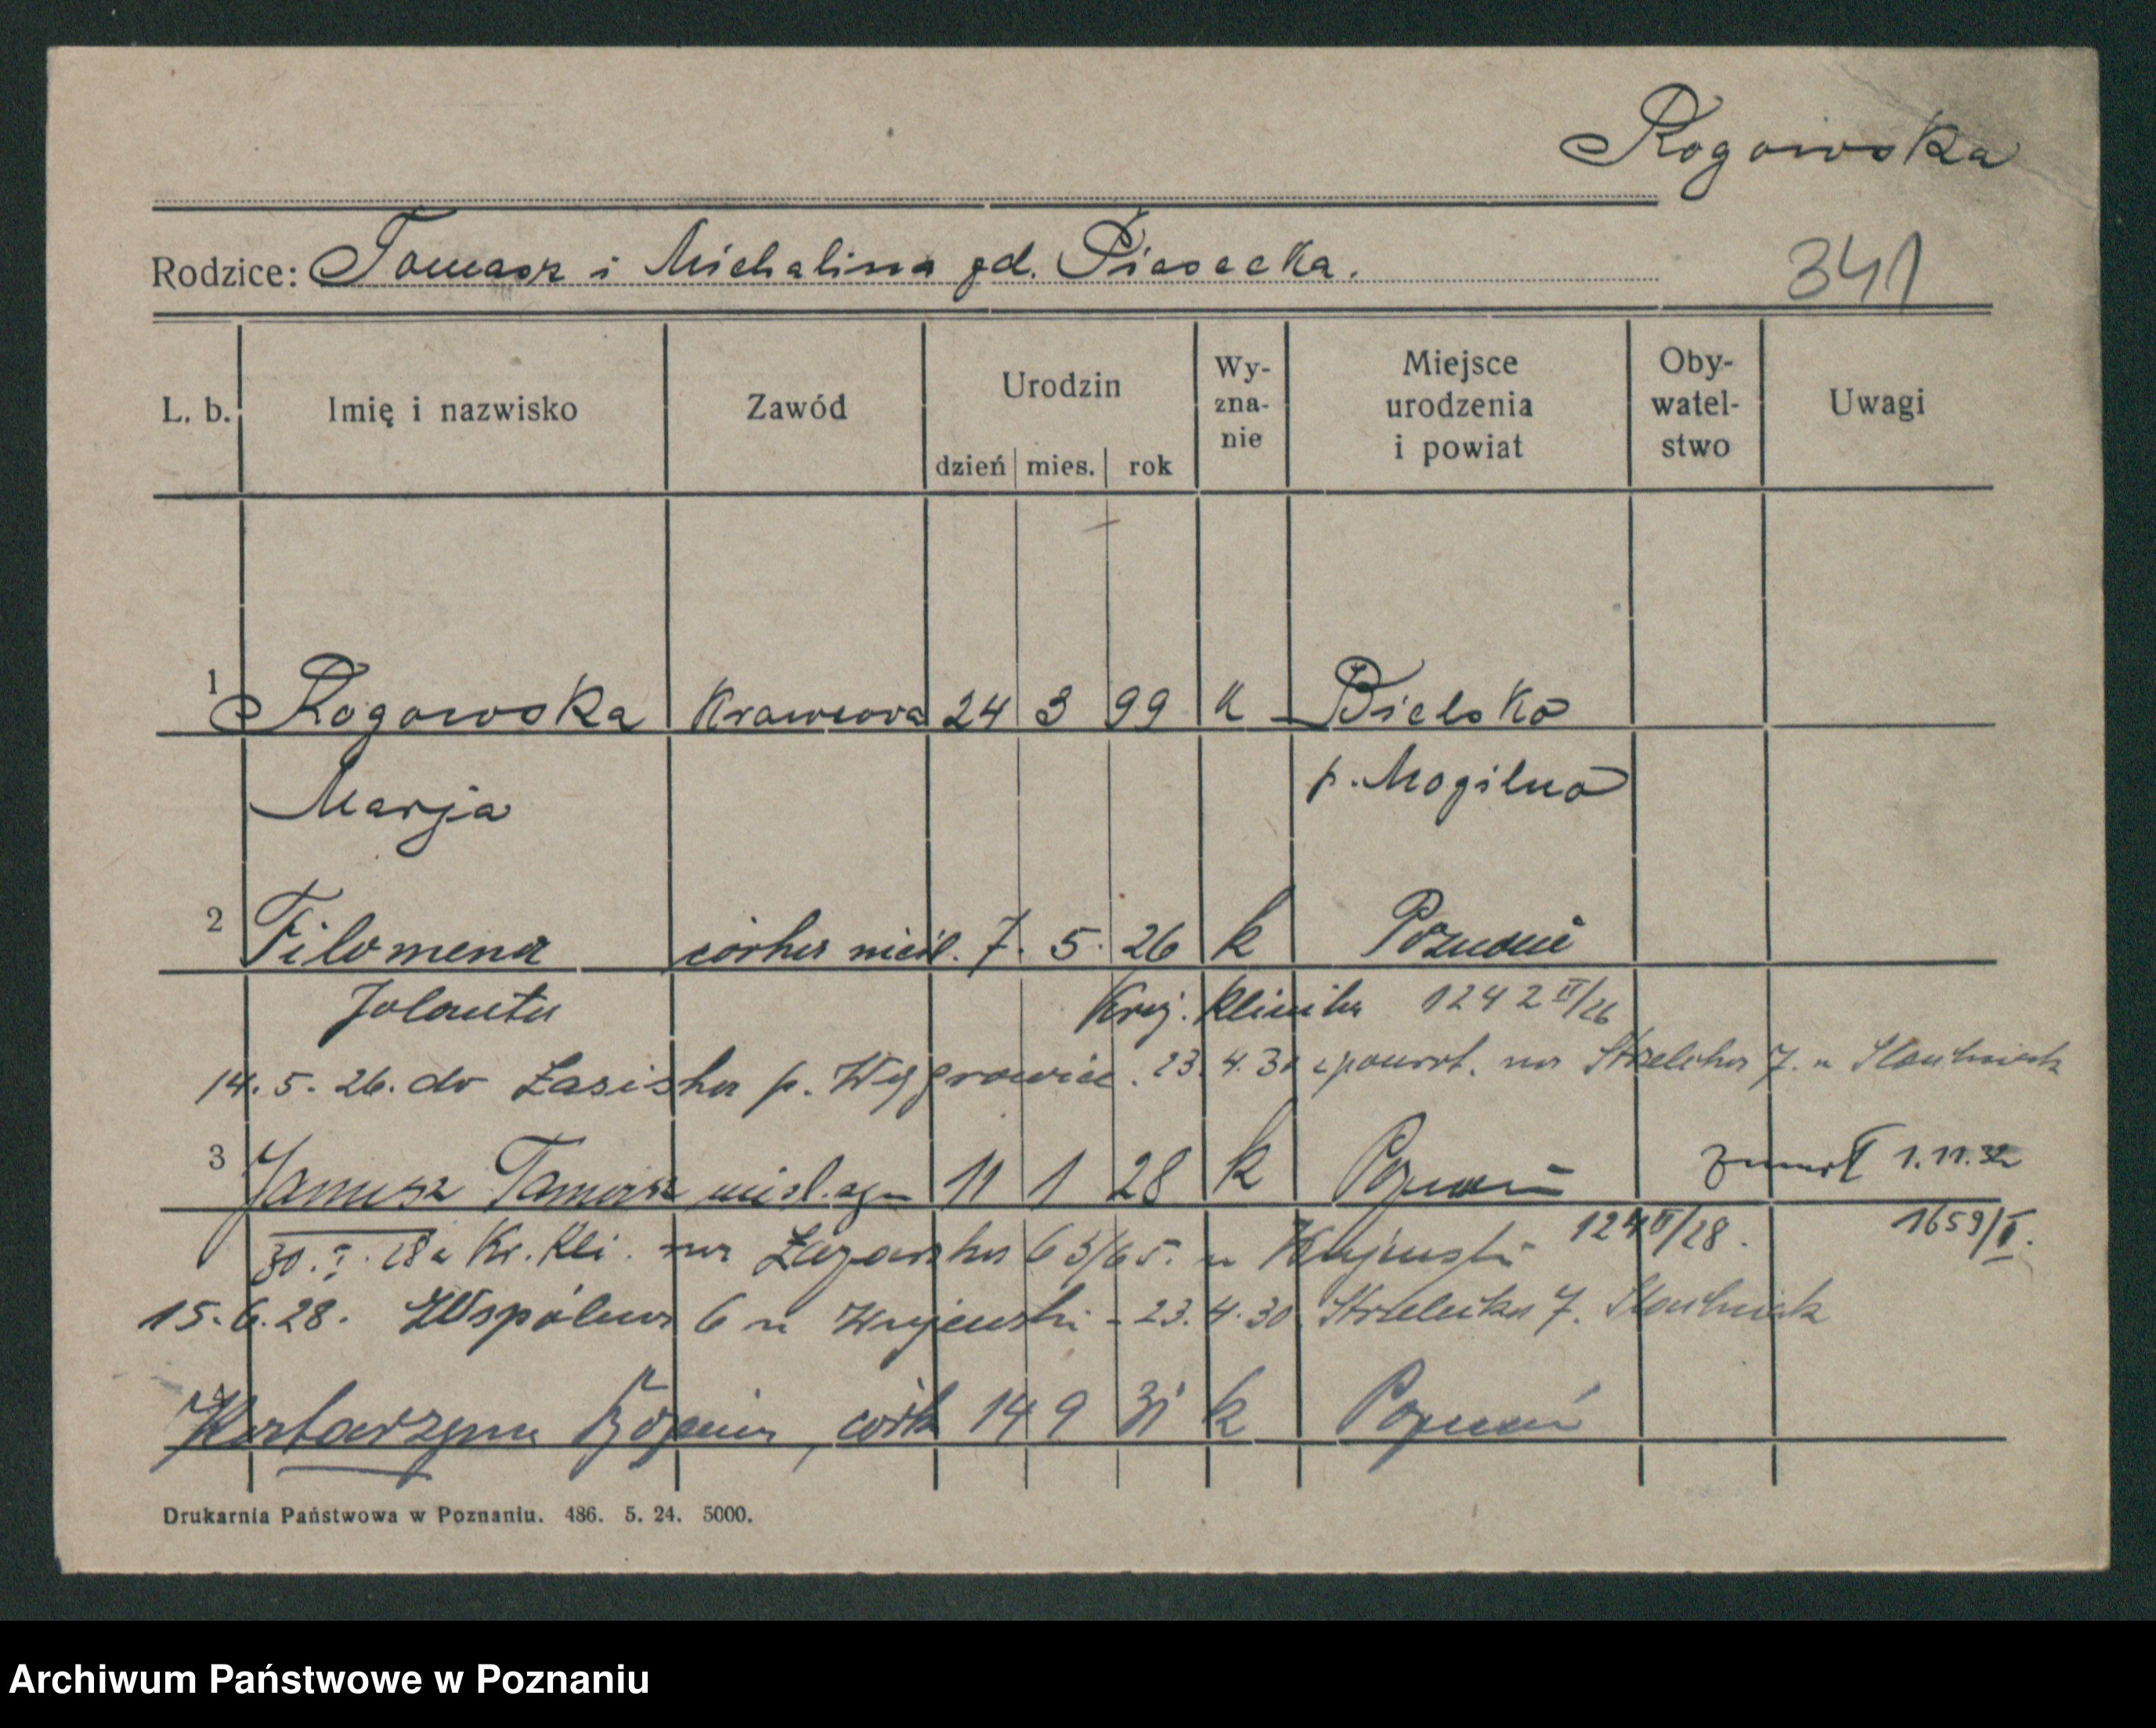 Rogowska
Rodzice: Tomasz i Michalina zd. Piasecka.
341
L. b. Imię i nazwisko Zawód Urodzin dzień mies. rok Wy- zna- nie Miejsce urodzenia i powiat Oby- watel- stwo Uwagi
1 Rogowska Krawcowa 24 3 99 k Bielsko
Marja p. Mogilno
2 Filomena córka nieśl. 7. 5. 26 k Poznań
Jolanta Kraj. Klinika 1242 II/26
14. 5. 26. do p. Wągrowiec. 23. 4. 30 z powrot. na Strzelecka 7. u
3 Janusz Tomasz nieśl. syn 11 1 28 k Poznań zmarł 1.11.32
30. I. 28 z Kr. Kli. na Łazarska 63/65. u 124 II/28. 1659/I.
15. 6. 28. Wspólna 6 u - 23. 4. 30 Strzelecka 7.
4 Katarzyna córk 14 9 31 k Poznań
Drukarnia Państwowa w Poznaniu. 486. 5. 24. 5000.
Archiwum Państwowe w Poznaniu